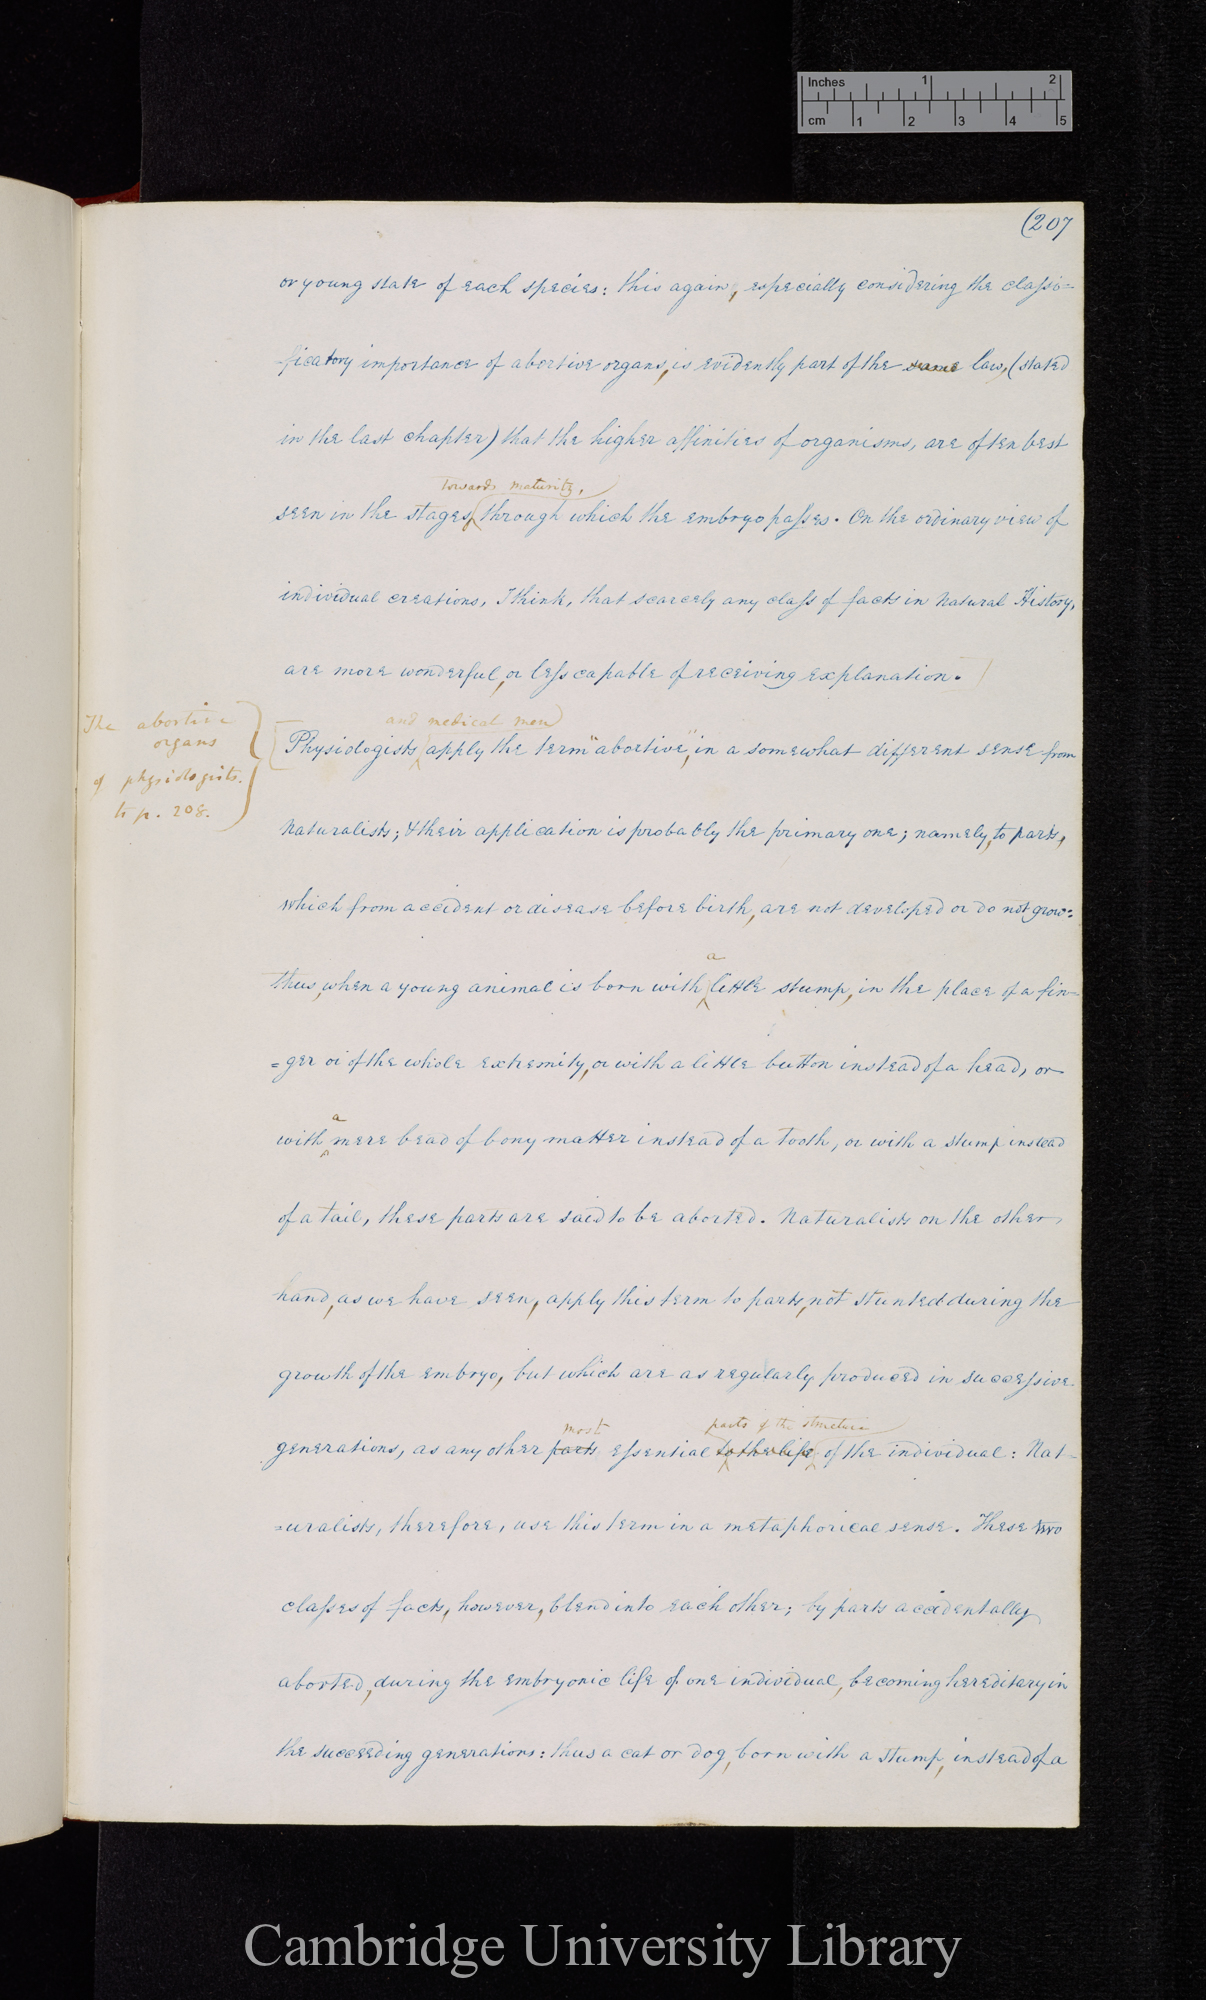 Inches 1 2
cm 1 2 3 4 5
(207
or young state of each species: this again, especially considering the classi=
-ficatory importance of abortive organs, is evidently part of the same law, (stated
in the last chapter) that the higher affinities of organisms, are often best
towards maturity,
seen in the stages, through which the embryo passes. On the ordinary view of
individual creations, I think, that scarcely any class of facts in Natural History,
are more wonderful, or less capable of receiving explanation.
The abortive
organs
of physiologists.
to p. 208.
and medical men
Physiologists apply the term "abortive", in a somewhat different sense from
Naturalists; & their application is probably the primary one; namely, to parts,
which from accident or disease before birth, are not developed or do not grow:
a
thus, when a young animal is born with little stump, in the place of a fin=
=ger or of the whole extremity, or with a little button instead of a head, or
a
with mere bead of bony matter instead of a tooth, or with a stump instead
of a tail, these parts are said to be aborted. Naturalists on the other
hand, as we have seen, apply this term to parts, not stunted during the
growth of the embryo, but which are as regularly produced in successive
most parts of the structure
generations, as any other parts essential to the life of the individual: Nat-
=uralists, therefore, use this term in a metaphorical sense. These two
classes of facts, however, blend into each other; by parts accidentally
aborted, during the embryonic life of one individual, becoming hereditary in
the succeeding generations: thus a cat or dog, born with a stump, instead of a
Cambridge University Library